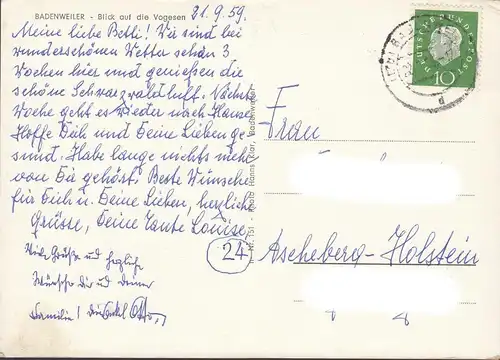 BADENWEILER - Blick auf die Vogesen
21.9.59.
Meine liebe Betti! Wir sind bei
wunderschönem Wetter schon 3
Wochen hier und genießen die
schöne Schwarzwaldluft. Nächste
Woche geht es wieder nach Hause.
Hoffe Dich und Deine Lieben ge
sund. Habe lange nichts mehr
von Dir gehört. Beste Wünsche
für Dich u. Deine Lieben, herzliche
Grüsse, Deine Tante Louise,
Viele Grüße und herzliche
Wünsche dir und deiner
Familie! Dein Onkel Otto
DEUTSCHE BUNDESPOST
10
Frau
24
Ascheberg-Holstein